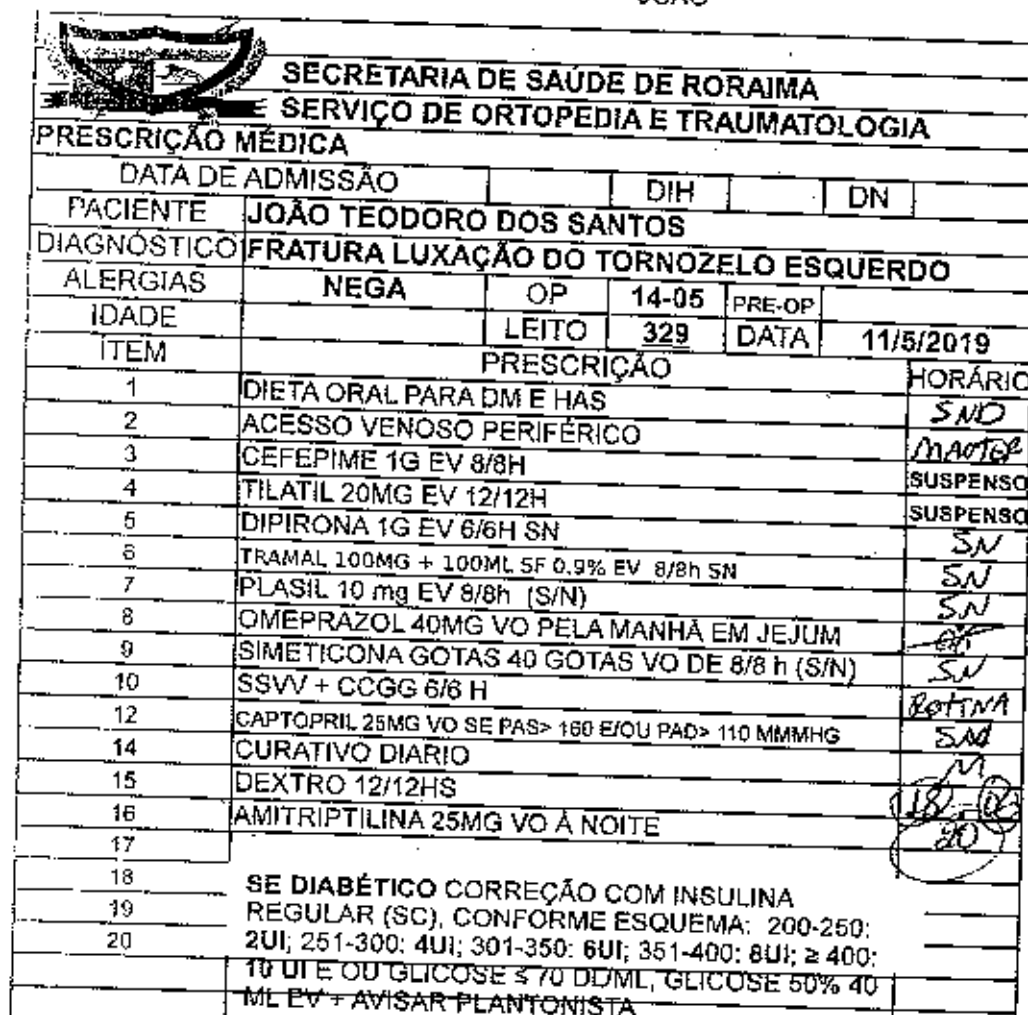 SECRETARIA DE SAÚDE DE RORAIMA
SERVIÇO DE ORTOPEDIA E TRAUMATOLOGIA
PRESCRIÇÃO MÉDICA
DATA DE ADMISSÃO DIH DN
PACIENTE JOÃO TEODORO DOS SANTOS
DIAGNÓSTICO FRATURA LUXAÇÃO DO TORNOZELO ESQUERDO
ALERGIAS NEGA OP 14-05 PRE-OP
IDADE LEITO 329 DATA 11/5/2019
ITEM PRESCRIÇÃO HORÁRIO
1 DIETA ORAL PARA DM E HAS SND
2 ACESSO VENOSO PERIFÉRICO MANTER
3 CEFEPIME 1G EV 8/8H SUSPENSO
4 TILATIL 20MG EV 12/12H SUSPENSO
5 DIPIRONA 1G EV 6/6H SN SN
6 TRAMAL 100MG + 100ML SF 0.9% EV 8/8h SN SN
7 PLASIL 10 mg EV 8/8h (S/N) SN
8 OMEPRAZOL 40MG VO PELA MANHÃ EM JEJUM
9 SIMETICONA GOTAS 40 GOTAS VO DE 8/8 h (S/N) SN
10 SSVV + CCGG 6/6 H ROTINA
12 CAPTOPRIL 25MG VO SE PAS> 160 E/OU PAD> 110 MMMHG
14 CURATIVO DIARIO M
15 DEXTRO 12/12HS 18 06
16 AMITRIPTILINA 25MG VO À NOITE 20
17
18 SE DIABÉTICO CORREÇÃO COM INSULINA
19 REGULAR (SC), CONFORME ESQUEMA: 200-250:
20 2UI; 251-300: 4UI; 301-350: 6UI; 351-400: 8UI; ≥ 400:
10 UI E OU GLICOSE ≤ 70 DL/ML, GLICOSE 50% 40
ML EV + AVISAR PLANTONISTA